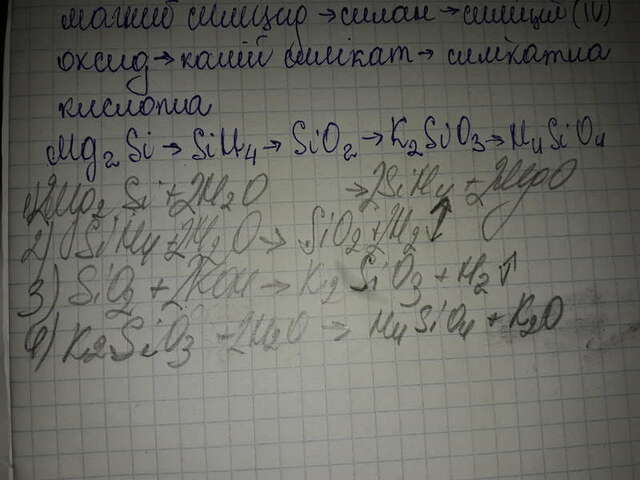 магний силицид → силан → силиций (IV)
оксид → калий силикат → силикатна
киселина
Mg₂Si → SiH₄ → SiO₂ → K₂SiO₃ → H₄SiO₄
→ SiH₄ + 2MgO
2) SiH₄ + 2H₂O → SiO₂ + H₂↑
3) SiO₂ + 2KOH → K₂SiO₃ + H₂↑
4) K₂SiO₃ + 2H₂O → H₄SiO₄ + K₂O